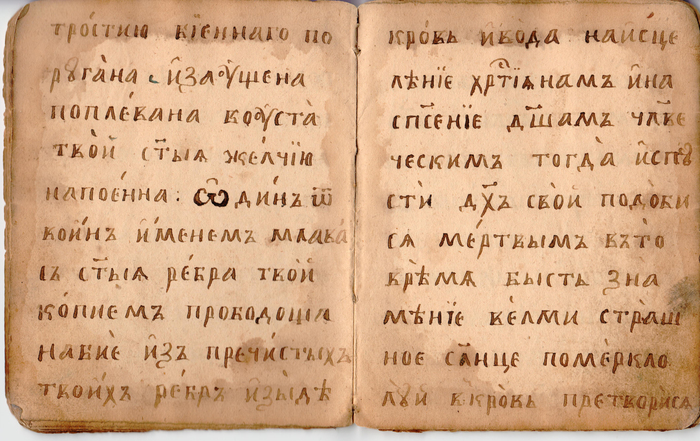 тро́стию кїеннаго по
ругана и҆заꙋшена
поплева́на воꙋста̀
твоѝ ст҃ыѧ же́лчїю
напое́нна : Ѡ҆ди́нъ ѿ
во́инъ и҆́менемъ млава
съ ст҃ыѧ ре́бра твоѝ
ко́пиемъ прободоша
набиѐ и҆зъ пречи́стыхъ
твои́хъ ре́бръ и҆зы́дѣ
кро́вь и҆вода̀ наи҆сце
лѣ́нїе хрⷭ҇тїѧ́намъ и҆на
спⷭ҇е́нїе дш҃амъ чл҃вѣ
ческимъ тогда̀ и҆спꙋ
стѝ дх҃ъ сво́й подоби
сѧ ме́ртвымъ въто
врѣ́мѧ бы́сть зна
мѣ́нїе ве́лми стра́ш
ное сл҃нце поме́ркло
лꙋ̀и вкро́вь претвори́сѧ